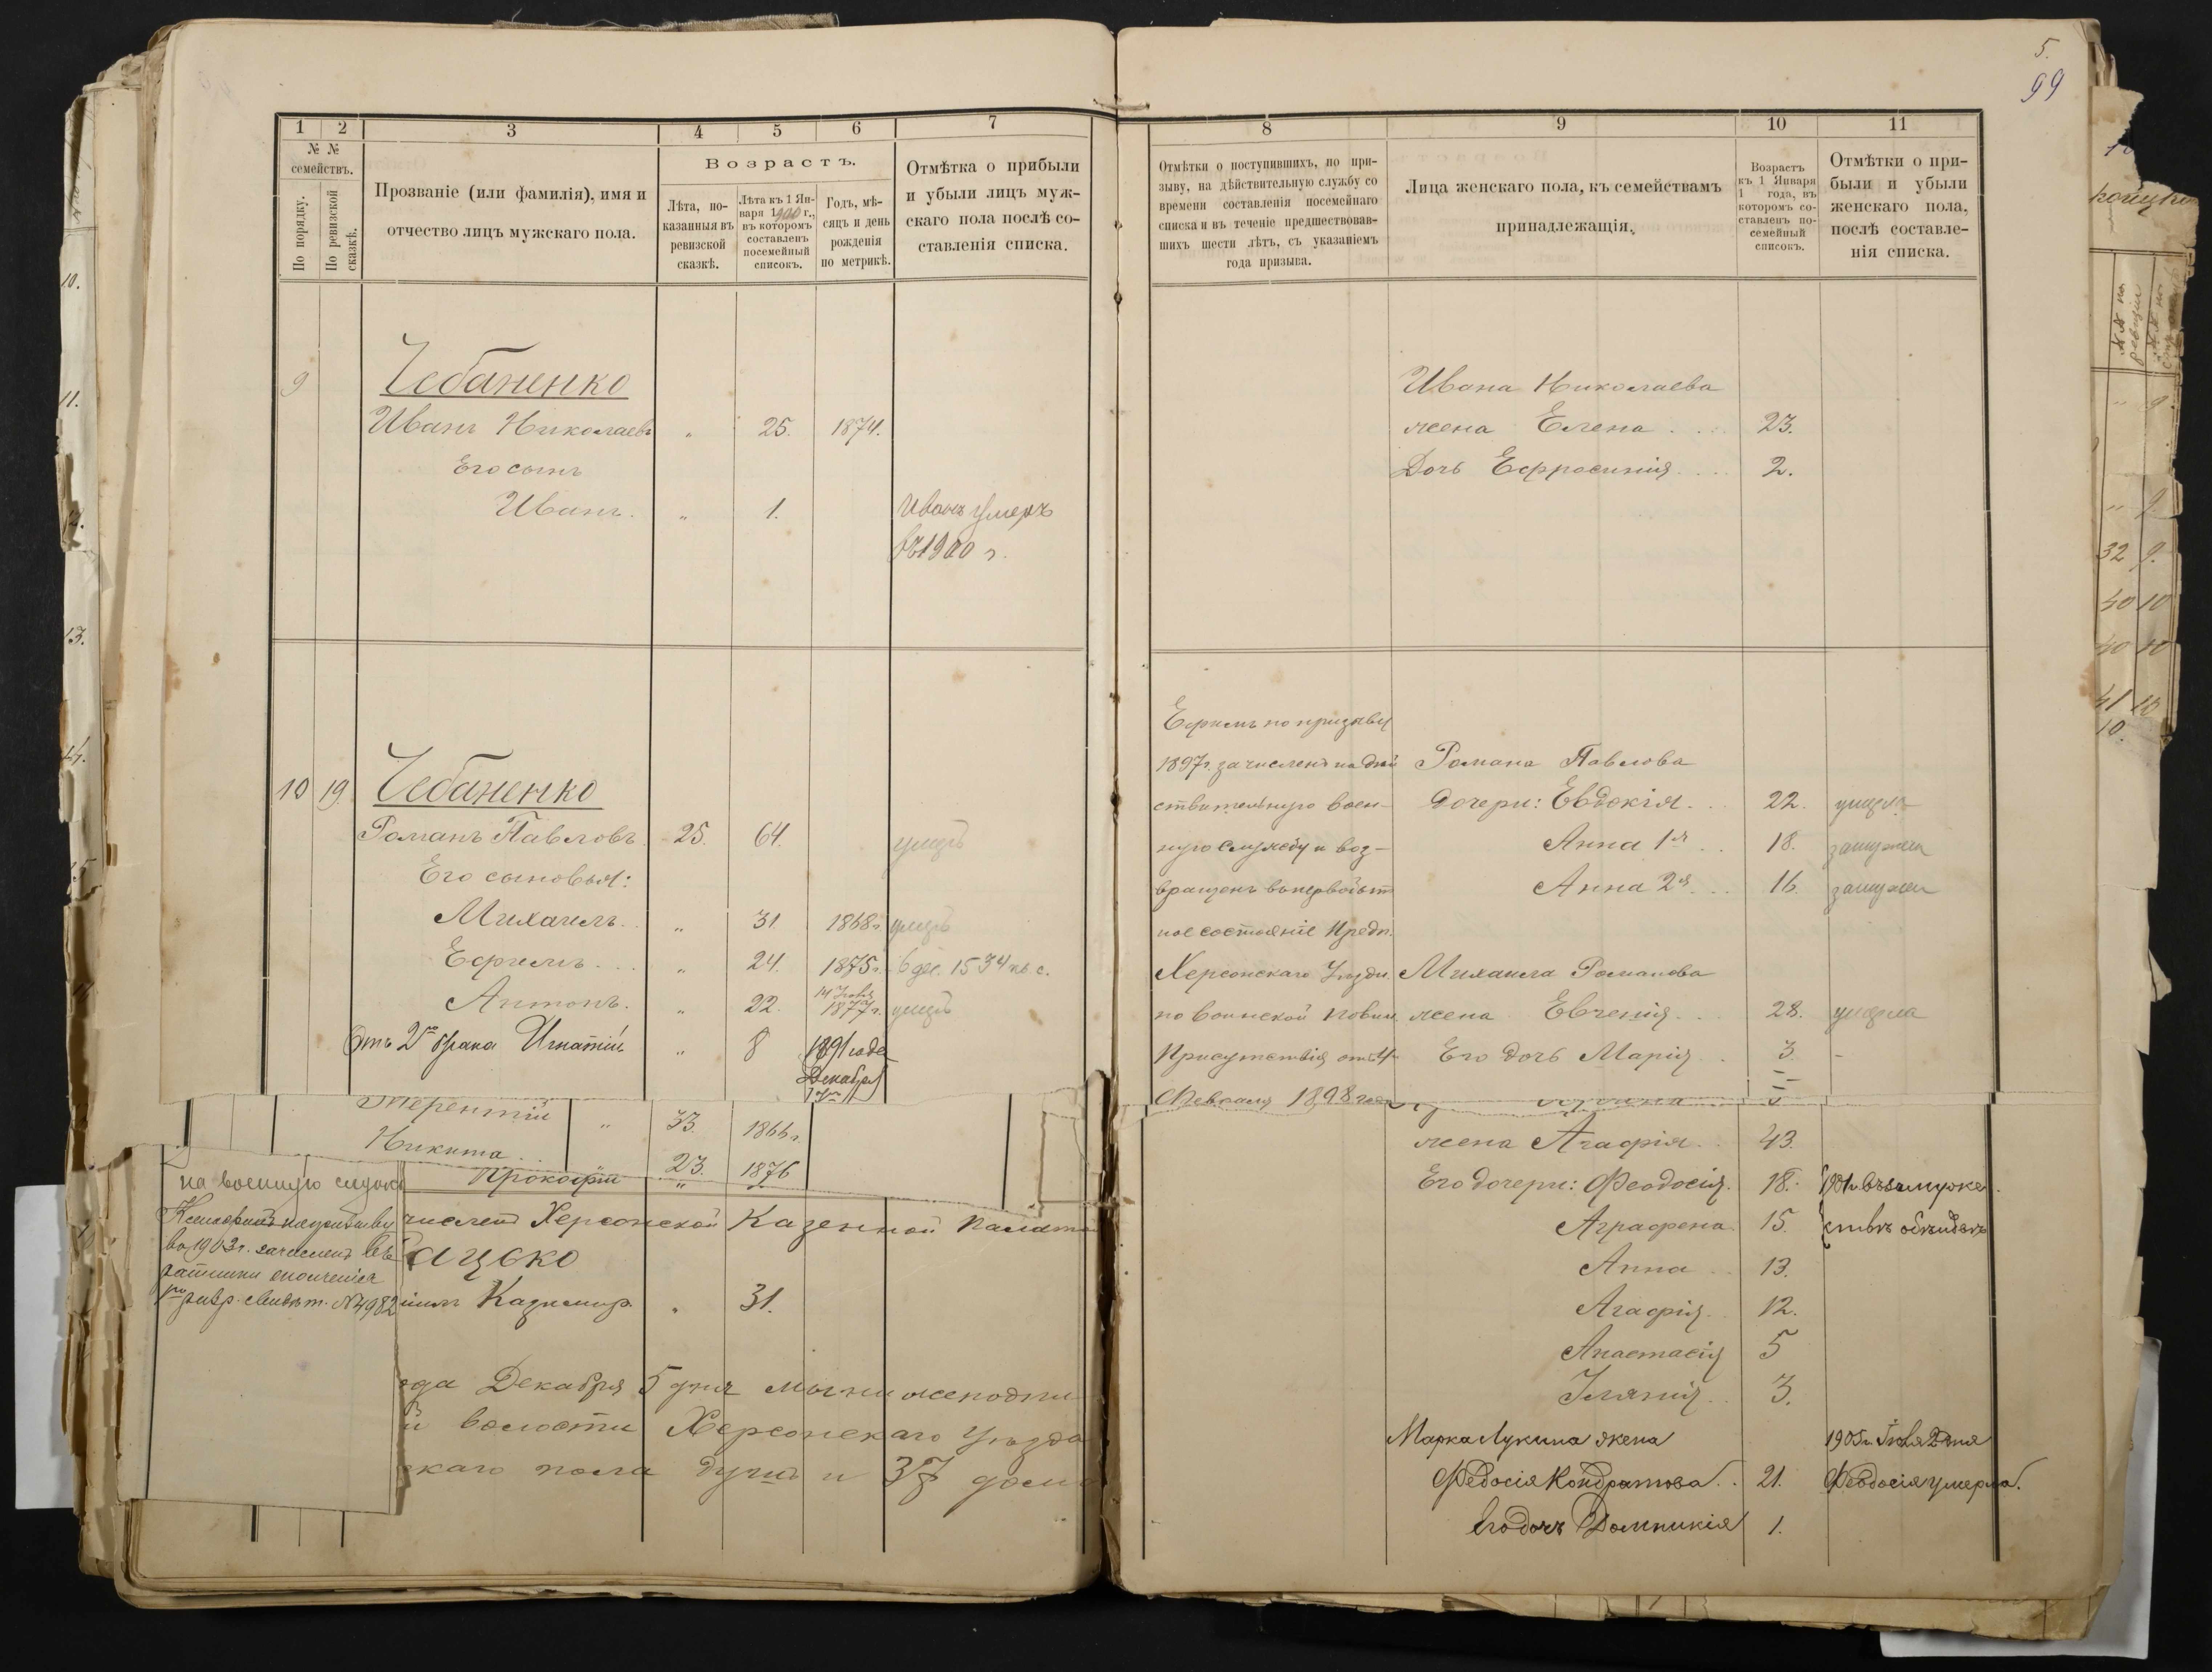 5.
99
1 2 3 4 5 6 7
№ №
семействъ.
По порядку.
По ревизской
сказкѣ.
Прозваніе (или фамилія), имя и
отчество лицъ мужскаго пола.
Возрастъ.
Лѣта, по-
казанныя въ
ревизской
сказкѣ.
Лѣта къ 1 Ян-
варя 1900 г.,
въ которомъ
составленъ
посемейный
списокъ.
Годъ, мѣ-
сяцъ и день
рожденія
по метрикѣ.
Отмѣтка о прибыли
и убыли лицъ муж-
скаго пола послѣ со-
ставленія списка.
9
Чебаненко
Иванъ Николаевъ " 25. 1874.
Его сынъ
Иванъ. " 1. Иванъ умеръ
въ 1900 г.
10 19. Чебаненко
Романъ Павловъ. 25. 64. умеръ
Его сыновья:
Михаилъ. " 31 1868г. умеръ
Ефимъ... " 24. 1875г.
Антонъ. " 22. 1877г. умеръ
Отъ 2го брака Игнатій " 8 1891 года
Декабря
Терентій " 33. 1866г.
Никита.. 23. 1876
Прокофій "
на военную служб
во 1903г. зачисленъ въ
ратники ополченія
свидѣт. №4982
численъ Херсонской Казенной Палато
ацько
Казимир. " 31.
ода Декабря 5 дня мы ниженодпи
й волости Херсонскаго Уѣзда
скаго пола душъ и 37 домо
8 9 10 11
Отмѣтки о поступившихъ, по при-
зыву, на дѣйствительную службу со
времени составленія посемейнаго
списка и въ теченіе предшествовав-
шихъ шести лѣтъ, съ указаніемъ
года призыва.
Лица женскаго пола, къ семействамъ
принадлежащія.
Возрастъ
къ 1 Января
1 года, въ
которомъ со-
ставленъ по-
семейный
списокъ.
Отмѣтки о при-
были и убыли
женскаго пола,
послѣ составле-
нія списка.
Ивана Николаева
жена Елена... 23.
Дочь Ефросинія.... 2.
Ефимъ по призыву
1897г. зачисленъ на дѣй
ствительную воен-
ную службу и воз-
вращенъ въ первобыт
ное состояніе
Херсонскаго Уѣздн.
по воинской повин
Присутствія отъ 4
Февраля 1898 года
Романа Павлова
дочери: Евдокія... 22. умерла
Анна 1я.. 18. замужем
Анна 2я... 16. замужем
Михаила Романова
жена Евгенія... 28. умерла
Его дочь Марія.. 3. -
жена Агафія.. 43.
Его дочери: Феодосія. 18.
Аграфена. 15.
Анна.. 13.
Агафія.. 12.
Анастасія 5
Іулянія.. 3.
Марка Лукина жена
Федосія Кондратова.. 21. Феодосія умерла.
Его дочь Домникія 1.